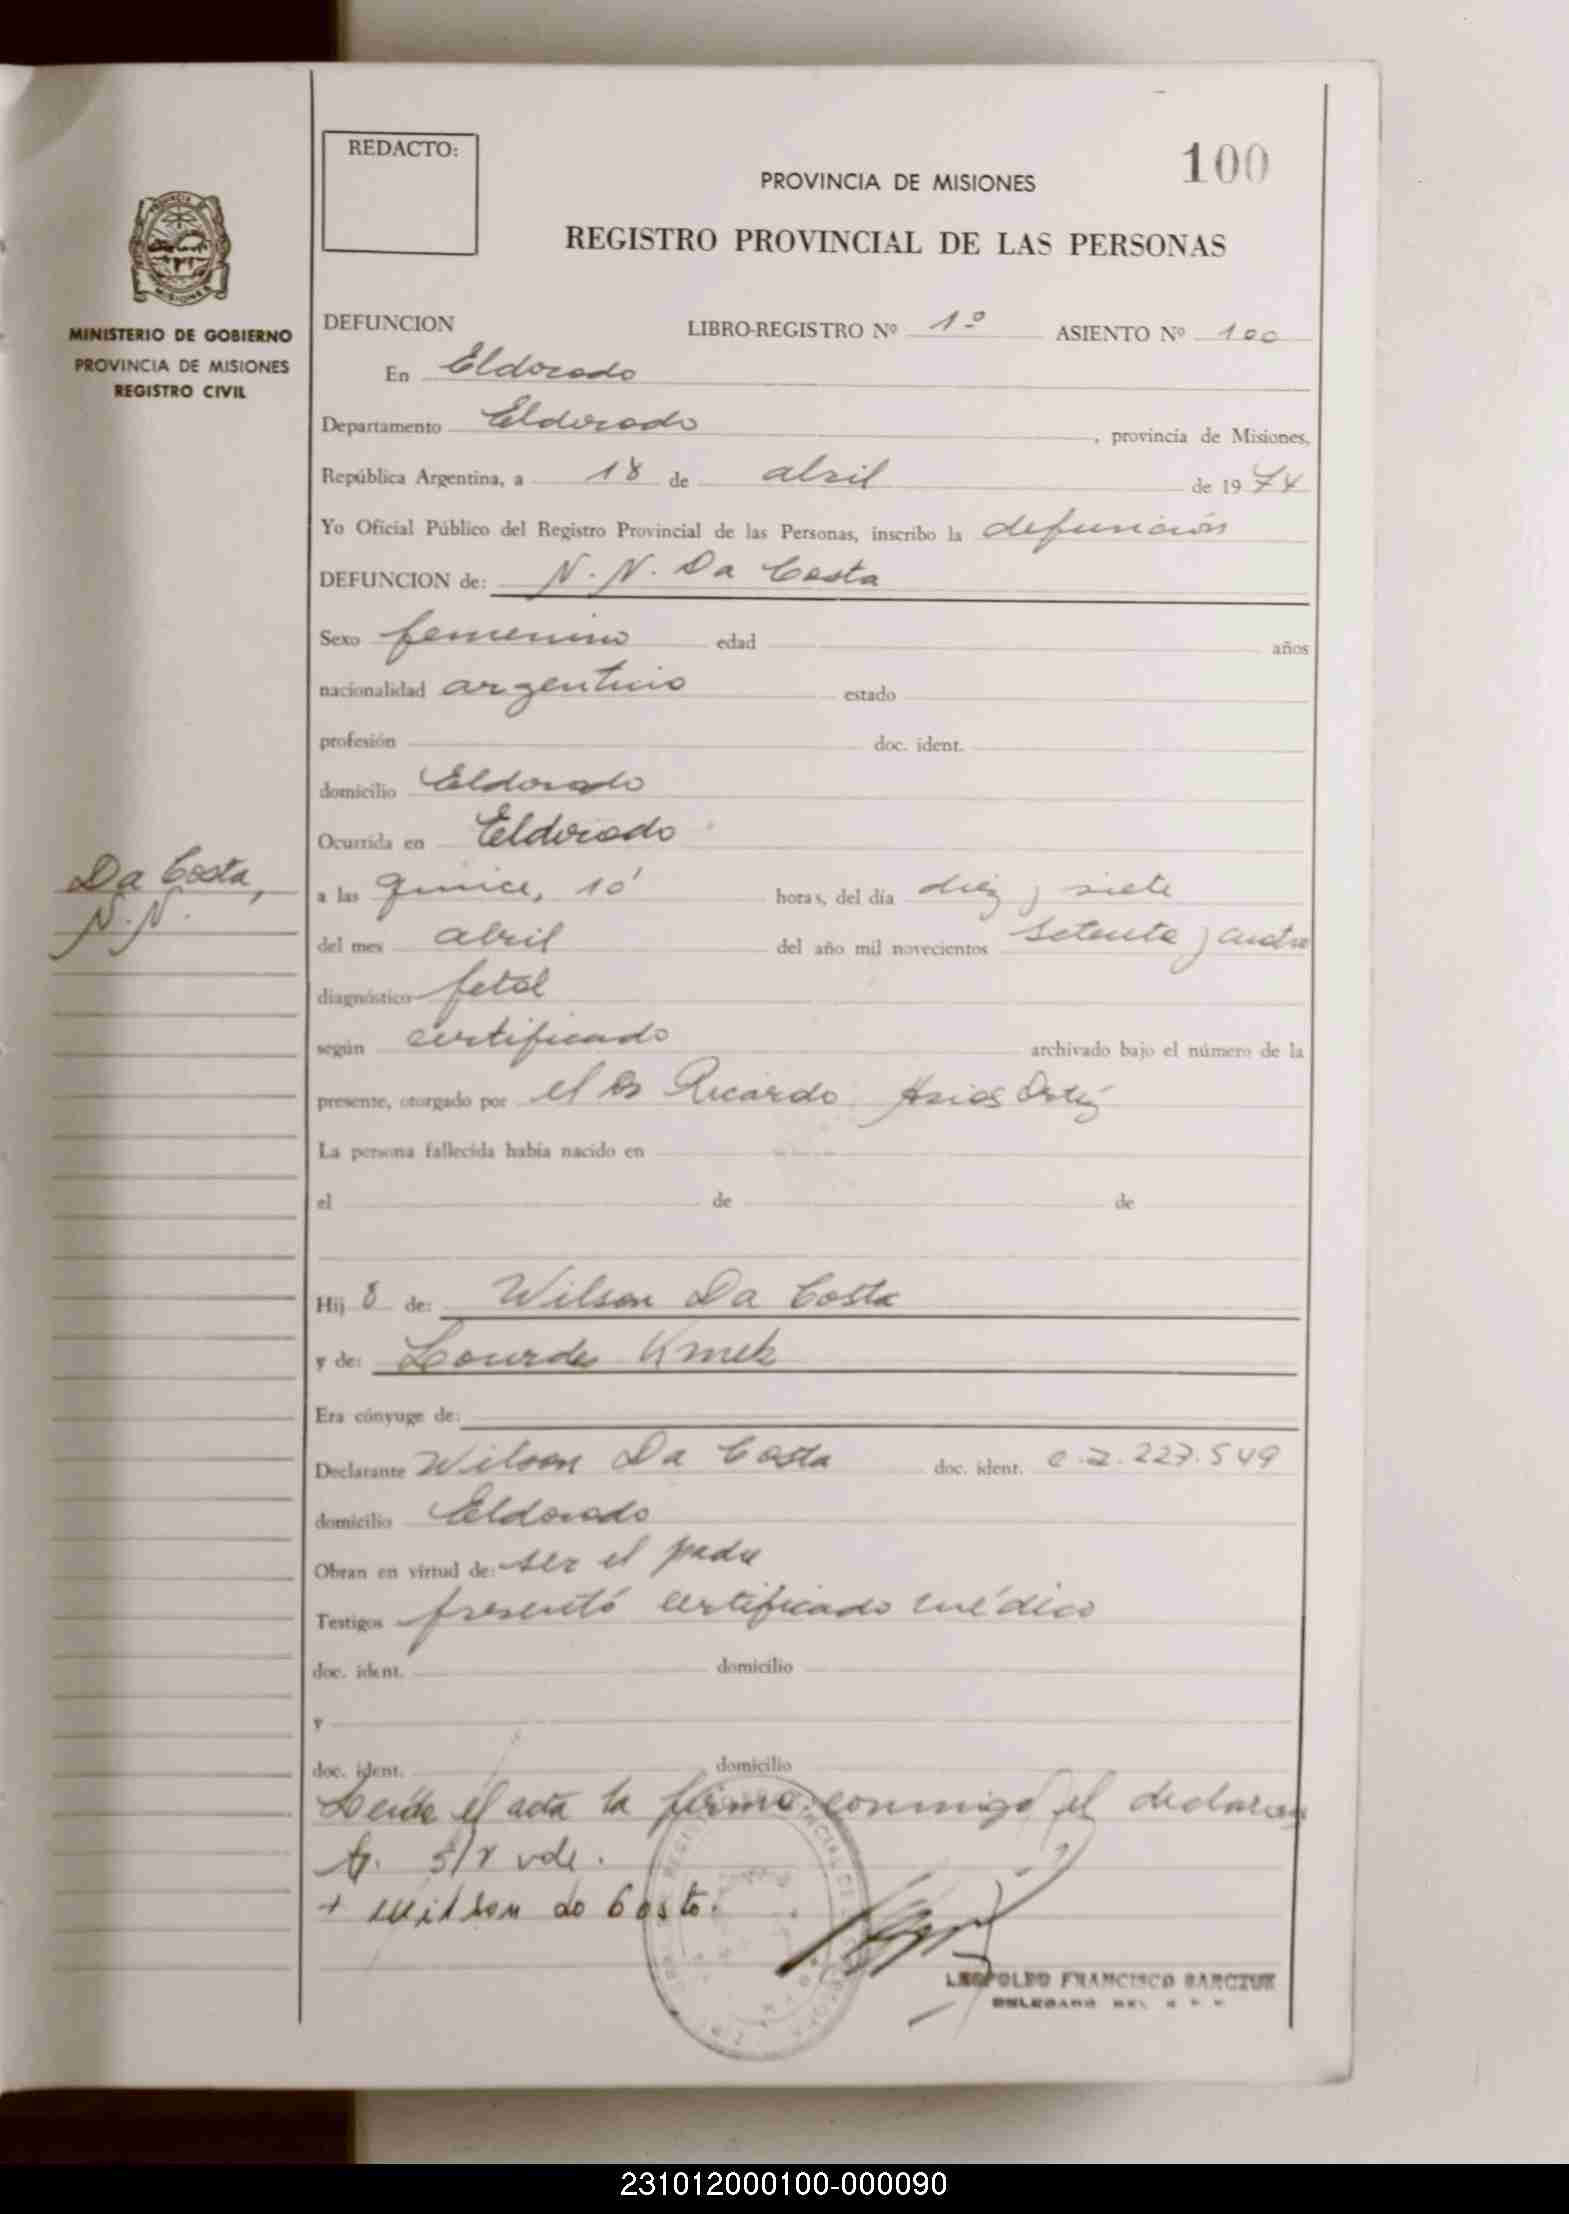 REDACTO:
100
PROVINCIA DE MISIONES
REGISTRO PROVINCIAL DE LAS PERSONAS
MINISTERIO DE GOBIERNO
PROVINCIA DE MISIONES
REGISTRO CIVIL
DEFUNCION LIBRO-REGISTRO Nº 1º ASIENTO Nº 100
En Eldorado
Departamento Eldorado, provincia de Misiones,
República Argentina, a 18 de abril de 1974
Yo Oficial Público del Registro Provincial de las Personas, inscribo la defunción
DEFUNCION de: N. N. Da Costa
Sexo femenino edad años
nacionalidad argentino estado
profesión doc. ident.
domicilio Eldorado
Ocurrida en Eldorado
Da Costa,
N. N.
a las quince, 10' horas, del día diez y siete
del mes abril del año mil novecientos setenta y cuatro
diagnóstico fetal
según certificado archivado bajo el número de la
presente, otorgado por el Dr Ricardo Ortiz
La persona fallecida había nacido en
el de de
Hij de: Wilson Da Costa
y de: Lourdes Kmek
Era cónyuge de:
Declarante Wilson Da Costa doc. ident. C.I. 227.549
domicilio Eldorado
Obran en virtud de: ser el padre
Testigos presentó certificado médico
doc. ident. domicilio
y
doc. ident. domicilio
Leída el acta la firma conmigo el declaran
te. s/r vde.
+ Wilson da Costa.
LEOPOLDO FRANCISCO
DELEGADO DEL R. P. P.
231012000100-000090